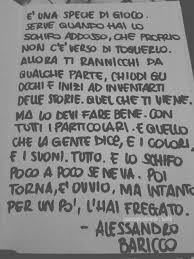 E' UNA SPECIE DI GIOCO.
SERVE QUANDO HAI LO
SCHIFO ADDOSSO, CHE PROPRIO
NON C'È VERSO DI TOGLIERLO.
ALLORA TI RANNICCHI DA
QUALCHE PARTE, CHIUDI GLI
OCCHI E INIZI AD INVENTARTI
DELLE STORIE. QUEL CHE TI VIENE.
MA LO DEVI FARE BENE. CON
TUTTI I PARTICOLARI. E QUELLO
CHE LA GENTE DICE, E I COLORI
E I SUONI. TUTTO. E LO SCHIFO
POCO A POCO SE NE VA. POI
TORNA, È OVVIO, MA INTANTO
PER UN PO', L'HAI FREGATO.
- ALESSANDRO
BARICCO